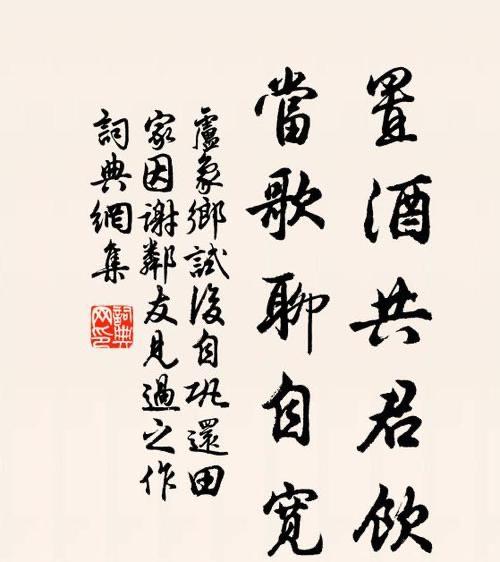 置酒共君飲
當歌聊自寬
盧象鄉試後自巩還田
家因謝鄰友見過之作
詞典網集
詞典网印